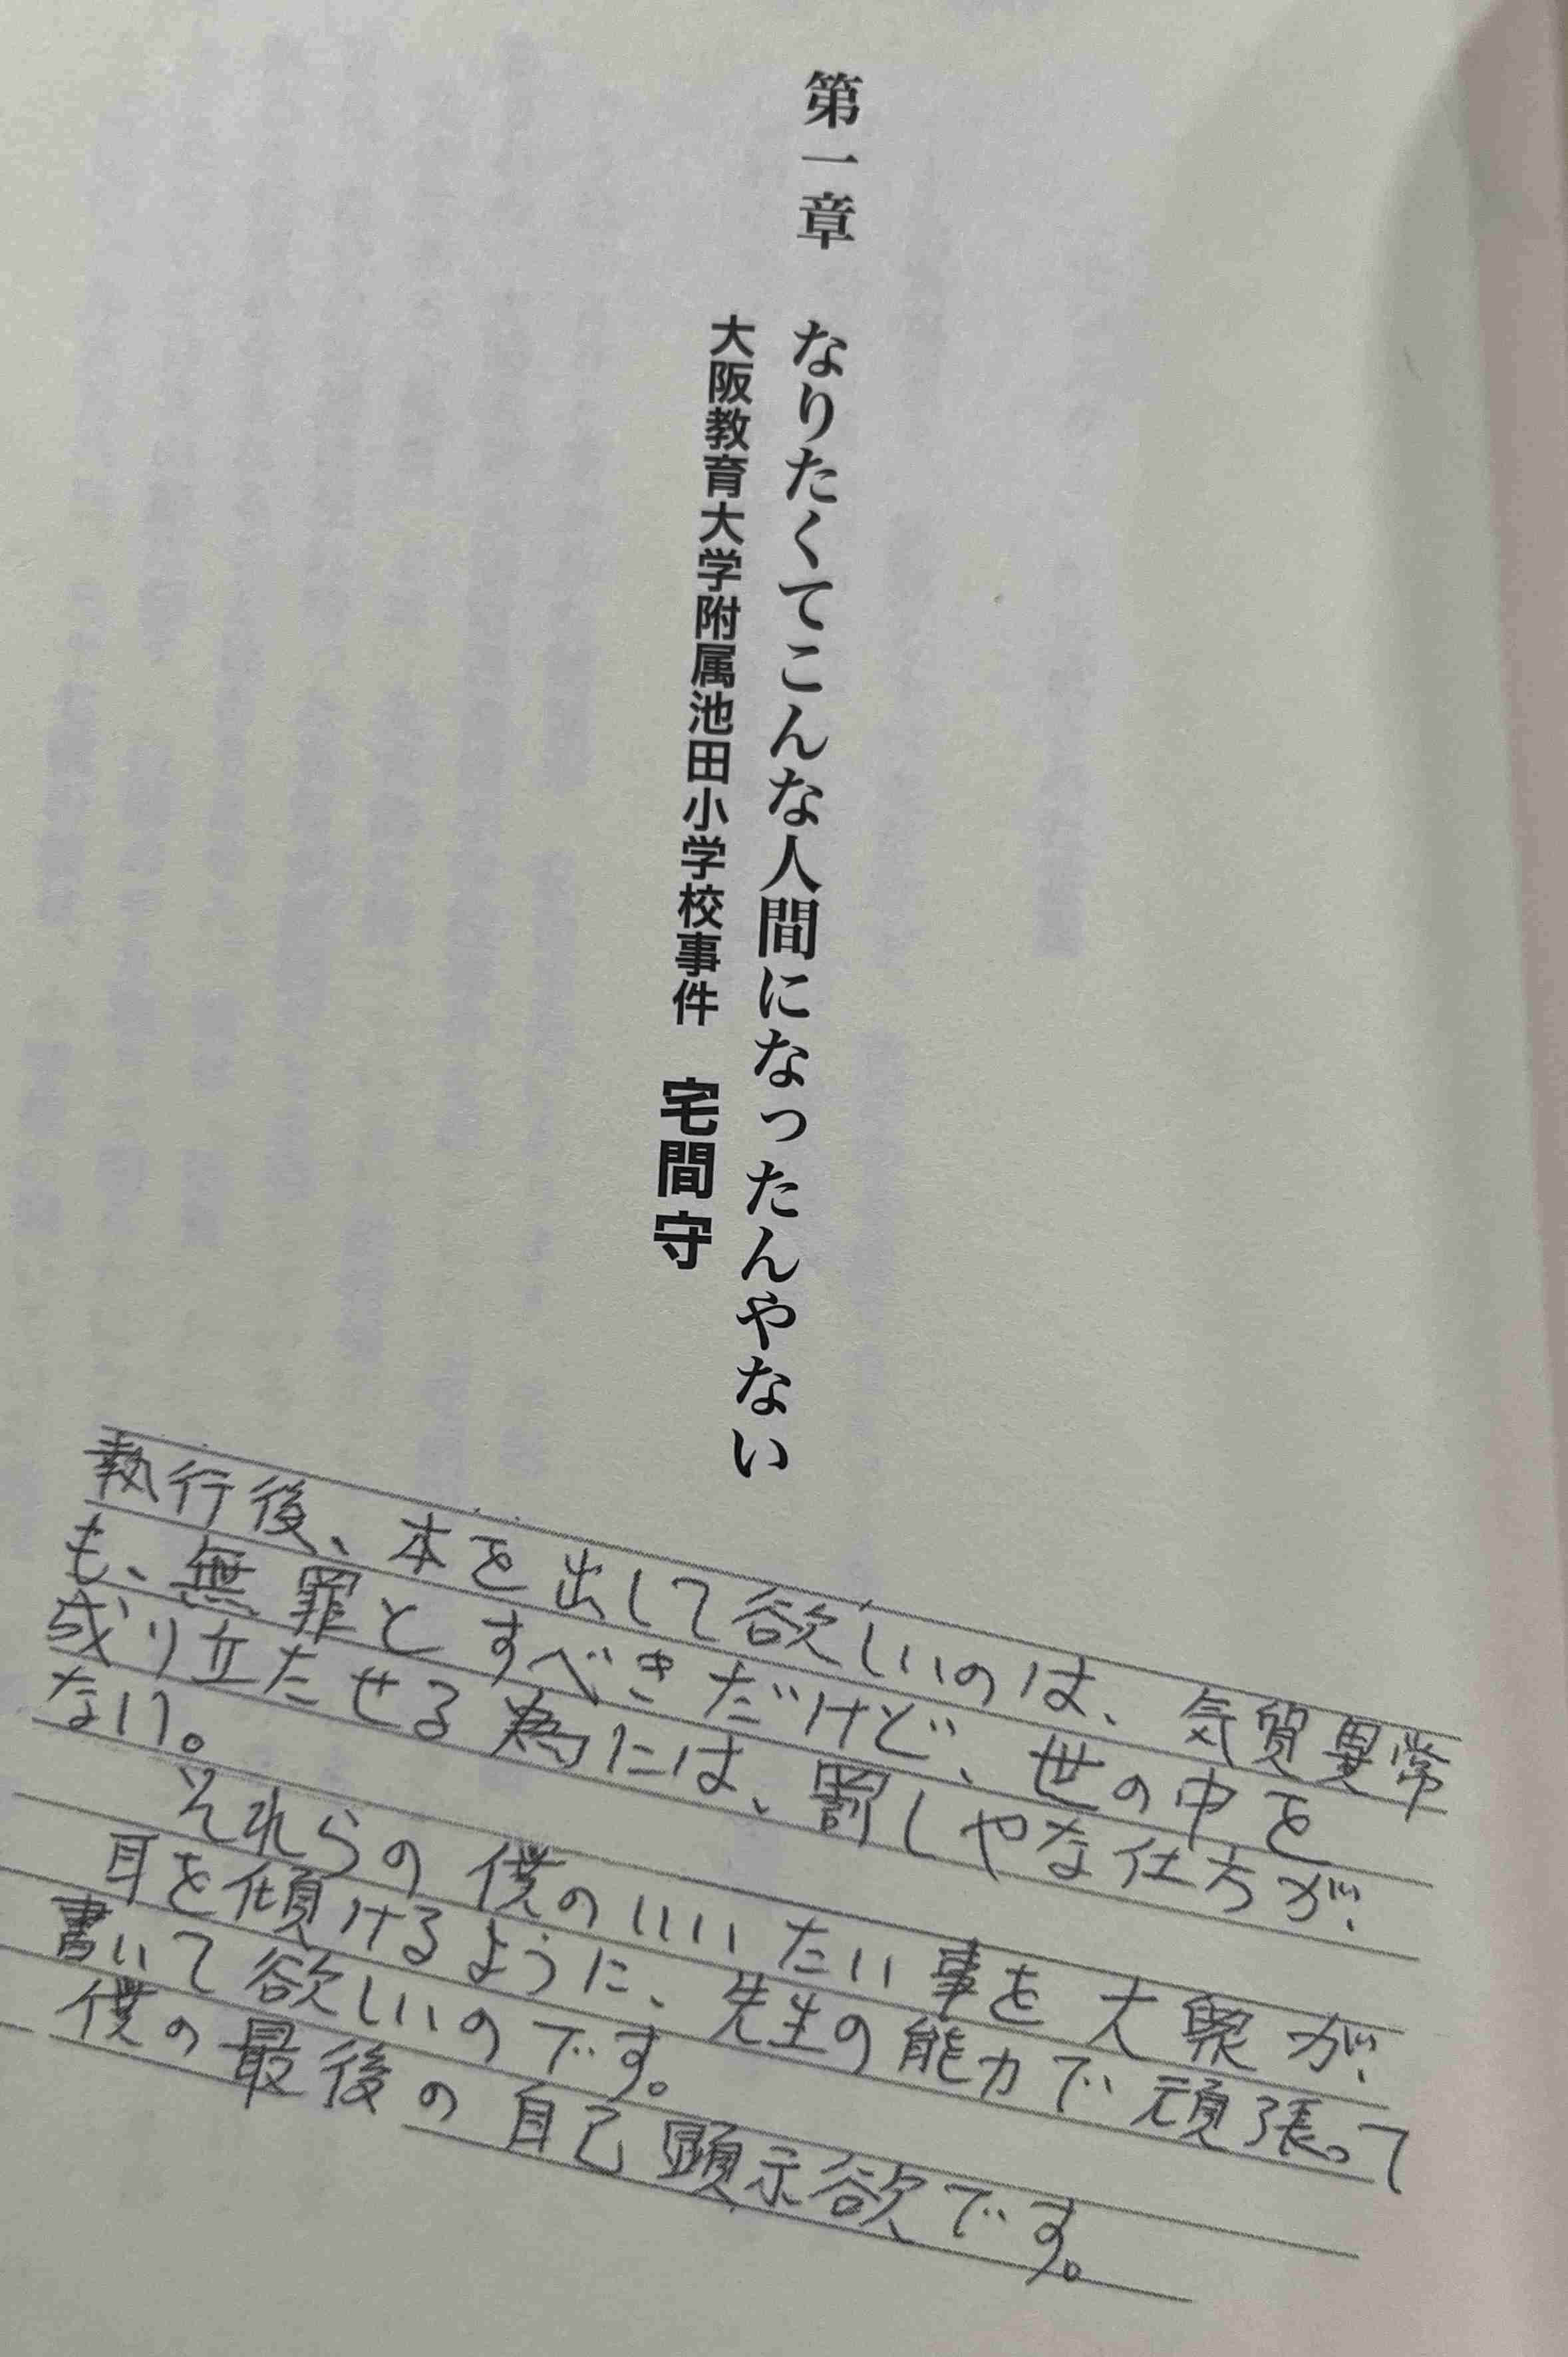 第一章　なりたくてこんな人間になったんやない
大阪教育大学附属池田小学校事件　宅間守
執行後、本を出して欲しいのは、気質異常
も、無罪とすべきだけど、世の中を
成り立たせる為には、罰しやな仕方が、
ない。
それらの僕のいいたい事を大衆が、
耳を傾けるように、先生の能力で頑張って
書いて欲しいのです。
僕の最後の自己顕示欲です。